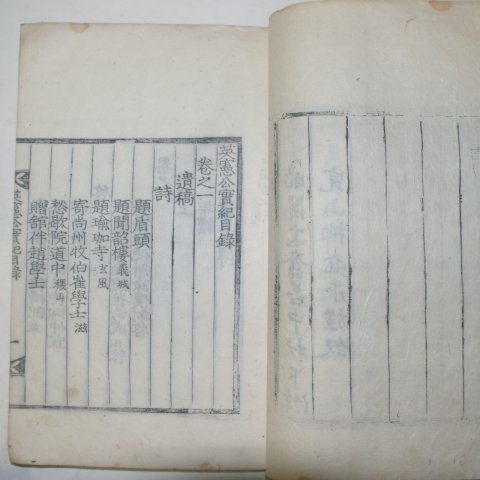 英憲公實紀目錄
卷之一
遺稿
詩
題盾頭
題聞韶樓 義城
題瑜珈寺 玄風
寄尚州牧伯崔學士 滋
愁歇院道中 稷山
贈舘伴趙學士
英憲公實紀目錄
一